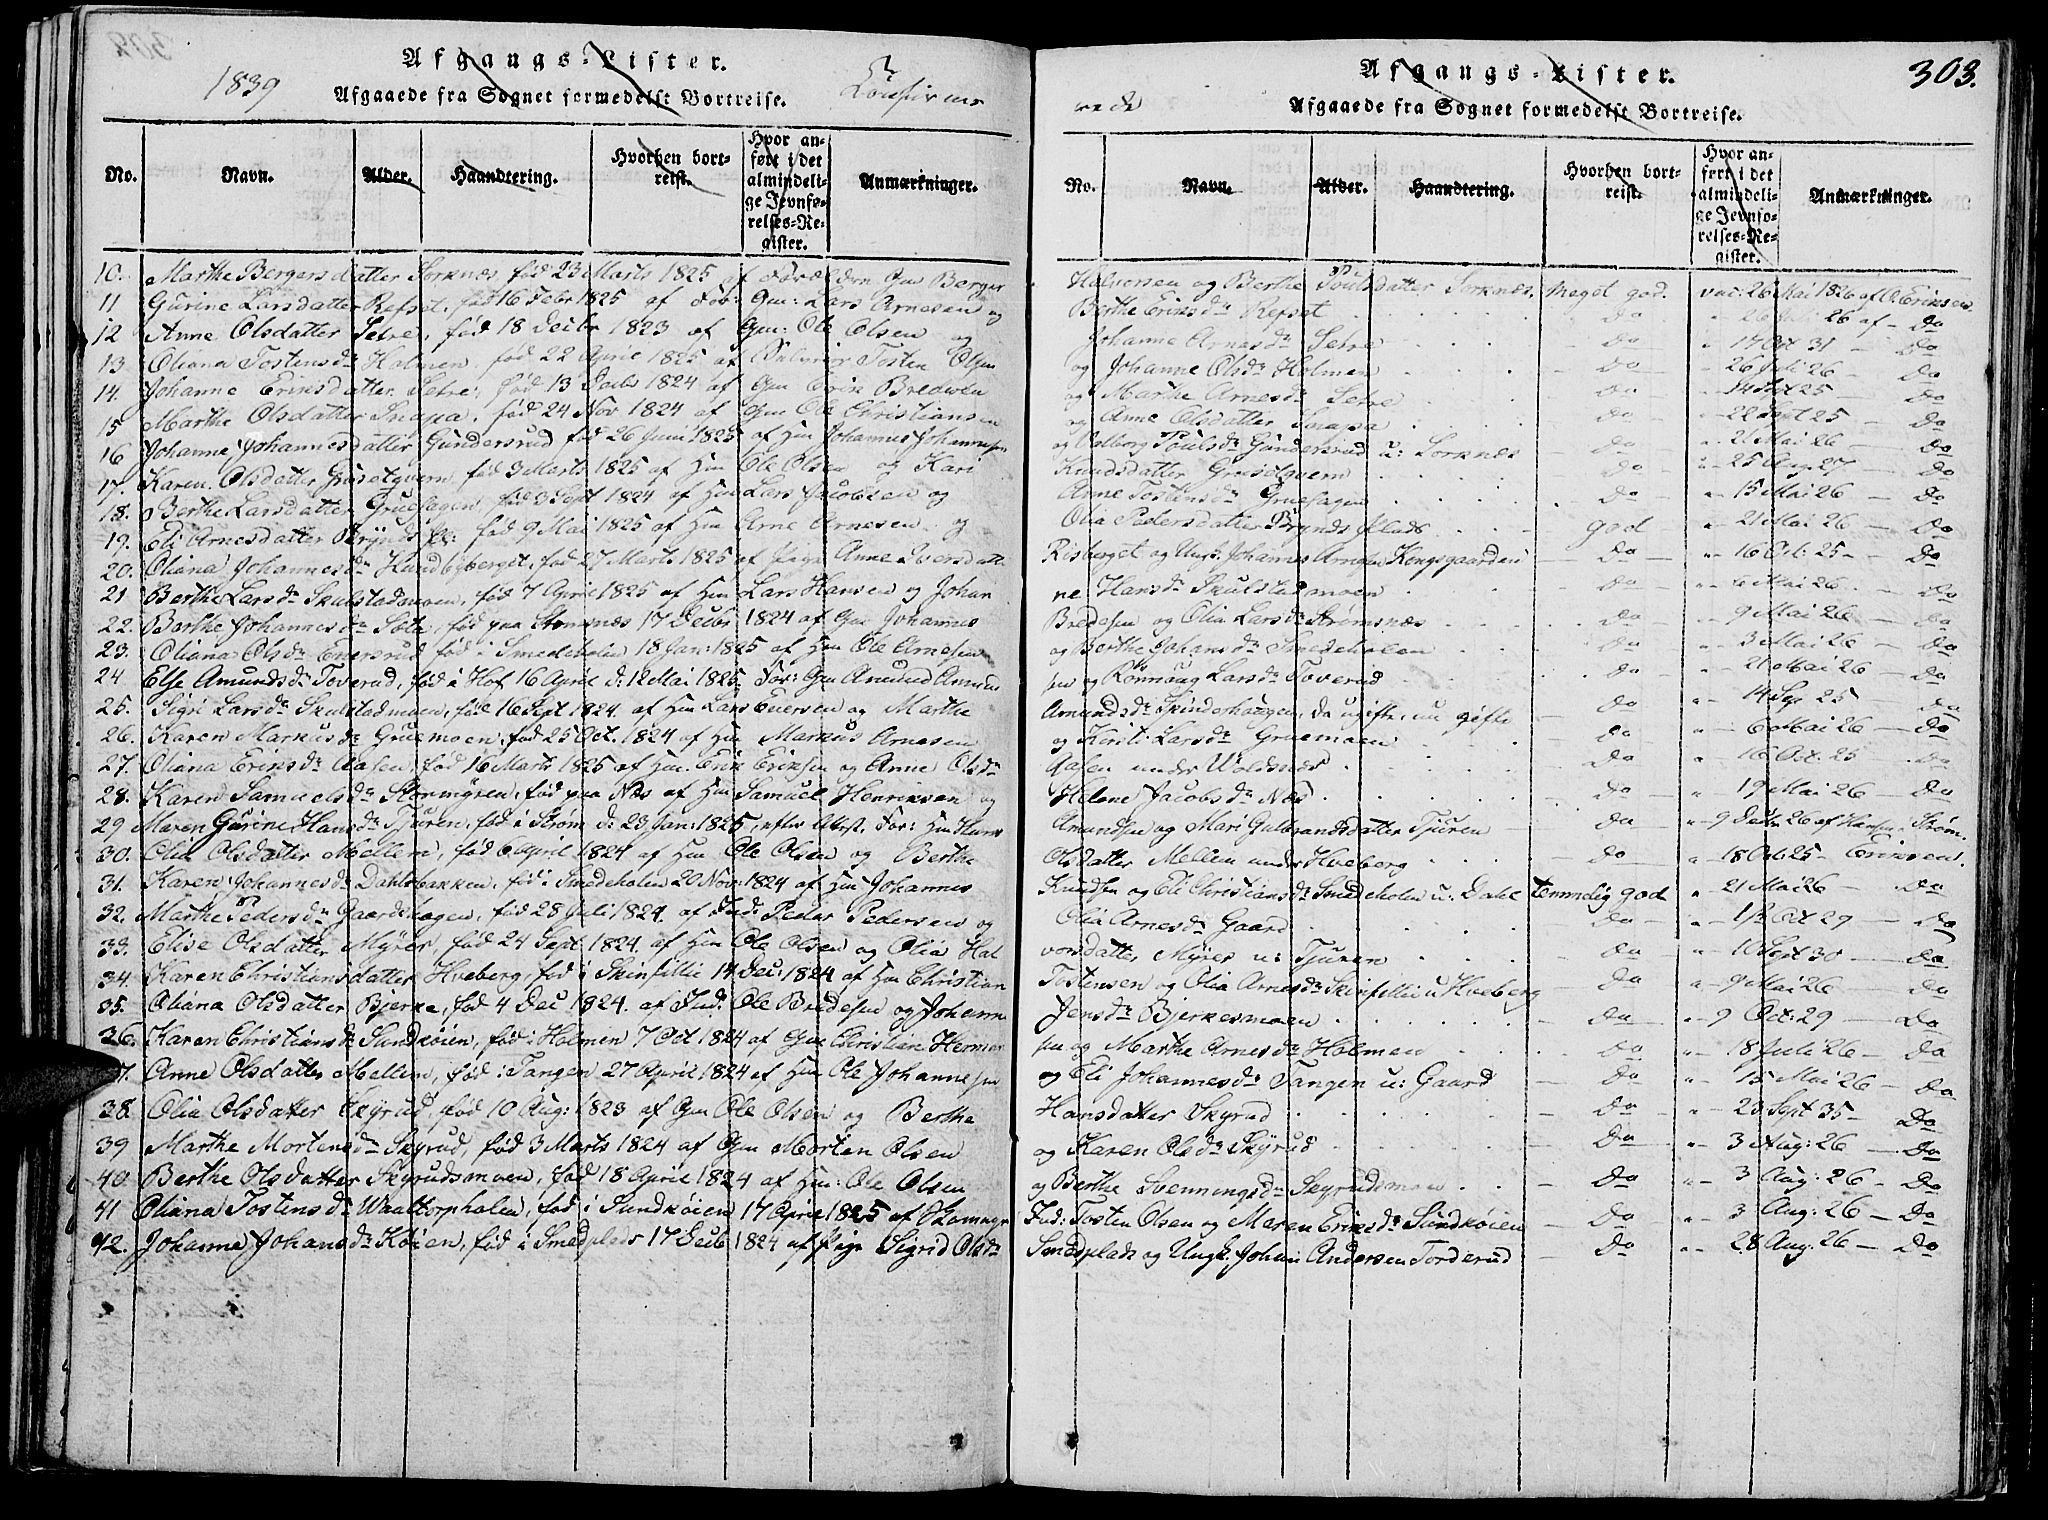 Afgangs-Lister.
1839
Afgaaede fra Sognet formedelst Bortreise.
No.
Navn.
Alder.
Haandtering.
Hvorhen bortreist.
Hvor anført i det almindelige Jevnførelses-Register.
Anmærkninger.
10. Marthe Bergersdatter Sorknæs, fød 23 Marts 1825 af Forældre Gm Berger
11 Gurine Larsdatter Refset, fød 16 Febr 1825 af For: Gm: Lars Arnesen og
12 Anne Olsdatter Setre, fød 18 Decbr 1823 af Gm: Ole Olsen og
13 Oliana Tostensdr Holmen, fød 22 April 1825 af Tosten Olsen
14. Johanne Eriksdatter Setre, fød 13 Decbr 1824 af Gm Erik Bredesen
15 Marthe Olsdatter Snapa, fød 24 Nov 1824 af Gm Ole Christiansen
16 Johanne Johannesdatter Gundersrud fød 26 Juni 1825 af Hm Johannes Johannesen
17. Karen Olsdatter Grusetqvern, fød 3 Marts 1825 af Hm Ole Olsen og Kari
18. Berthe Larsdatter Gruehagen, fød 3 Sept 1824 af Hm Lars Jacobsen og
19. Eli Arnesdatter Brynds Pl: fød 9 Mai 1825 af Hm Arne Arnesen og
20. Oliana Johannesdr Hundbyberget, fød 27 Marts 1825 af Pige Anne Iversdatter
21 Berthe Larsdr Skulstadmoen, fød 7 April 1825 af Hm Lars Hansen og Johan
22. Berthe Johannesdr Sæta, fød paa Strømsnæs 17 Decbr 1824 af Gm Johannes
23. Oliana Olsdr Enersrud fød i Smedeholen 18 Jan: 1825 af Hm Ole Arnesen
24 Else Amundsdr Toverud, fød i Hof 16 April d: 12 Mai 1825 For: Gm Amund Amund
25. Sigri Larsdr Skulstadmoen, fød 16 Sept 1824. af Hm Lars Evensen og Marthe
26. Karen Markusdr Gruemoen, fød 25 Oct. 1824 af Hm Markus Arnesen
27. Oliana Eriksdr Aasen, fød 16 Marts 1825 af Hm. Erik Eriksen og Anne Olsdr
28. Karen Samuelsdr fød paa Næs af Hm Samuel Henriksen og
29 Maren Gurine Hansdr Tjuren, fød i Strøm d: 23 Jan: 1825, efter Attest, For: Hm Hans
30. Olia Olsdatter Mellem, fød 6 April 1824 af Hm Ole Olsen og Berthe
31. Karen Johannesdr Dahlsbakken, fød i Smedeholen 20 Nov: 1824 af Hm Johannes
32. Marthe Pedersdr Gaardshagen, fød 28 Juli 1824. af Ind: Peder Pedersen og
33. Elise Olsdatter Myrer, fød 24 Sept. 1824. af Hm Ole Olsen og Olia Hal
34. Karen Christiansdatter Hveberg, fød i Skinfellie 14 Dec: 1824 af Hm Christian
35. Oliana Olsdatter Bjerke, fød 4 Dec 1824. af Ind: Ole Bredesen og Johanne
36. Karen Christiansdr Sundkøien, fød i Holmen 7 Oct 1824 af Gm Christian Herman
37. Anne Olsdatter Mellem, fød i Tangen 27 April 1824 af Hm Ole Johannesen
38. Olia Olsdatter Skyrud, fød 10 Aug: 1823 af Gm Ole Olsen og Berthe
39 Marthe Mortensdr Skyrud, fød 3 Marts 1824 af Gm Morten Olsen
40. Berthe Olsdatter Skyrudsmoen, fød 18 April 1824 af Hm: Ole Olsen
41 Oliana Tostensdr Waattorpholen, fød i Sundkøien 17 April 1825 af
42. Johanne Johansdr Køien, fød i Smedplads 17 Decb. 1824 af Pige Sigrid Olsdr
Afgangs-Lister.
303.
Afgaaede fra Sognet formedelst Bortreise.
No.
Navn.
Alder.
Haandtering.
Hvorhen bortreist.
Hvor anført i det almindelige Jevnførelses-Register.
Anmærkninger.
Halvorsen og Berthe Poulsdatter Sorknæs. Meget god. vac: 26 Mai 1826 af O Eriksen
Berthe Eriksdr Refset Do " 26 Juli 26 af - Do
Johanne Arnesdr Setre Do " 17 Oct 31 — Do
og Johanne Olsdr Holmen Do " 26 Juli 26 — Do
og Marthe Arnesdr Setre Do " 14 Sept 25 — Do
og Anne Olsdatter Snapa Do " 22 Sept 25 — Do
og Aalborg Poulsdr Gundersrud u: Sorknæs Do " 21 Mai 26 — Do
Knudsdatter Grusetqvern Do " 25 Aug. 27 — Do
Anne Tostensdr Gruehagen Do " 15 Mai 26 — Do
Olia Pedersdatter Brynds Plads god " 21 Mai 26 — Do
Risberget og Ungk. Johannes Arnesen Kongsgaarden Do " 16 Oct: 25 — Do
ne Hansdr Skulstadmoen Do " 6 Mai 26 Do
Bredesen og Olia Larsdr Strømsnæs Do " 9 Mai 26 — Do
og Berthe Johansdr Smedeholen Do " 3 Mai 26 — Do
sen og Rønnoug Larsdr Toverud Do " 21 Mai 26 — Do
Amundsdr Tjinderhaugen, da ugifte, nu gifte Do " 14 Sep 25 Do
og Kersti Larsdr Gruemoen Do " 6 Mai 26 — Do
Aasen under Woldsnæs Do " 16 Oct: 25 — Do
Helene Jacobsdr Næs Do " 19 Mai 26 — Do
Amundsen og Mari Gulbrandsdatter Tjuren Do " 9 Oct 26 af Hansen Strøm.
Olsdatter Mellem under Hveberg Do " 18 Oct: 25 — Eriksen.
Knudsen og Eli Christiansdr Smedeholen u: Dahl temmelig god " 21 Mai 26 — Do
Olia Arnesdr Gaard Do " Oct 29 — Do
vorsdatter Myrer u: Tjuren Do " 10 Sept 30 — Do
Tostensen og Olia Arnesdr Skinfellie u Hveberg Do " 9 Mai 26 — Do
Jensdr Bjerkesmoen Do " 9 Oct: 29 — Do
sen og Marthe Arnesdr Holmen Do " 18 Juli 26 — Do
og Eli Johannesdr Tangen u: Gaard Do " 15 Mai 26 — Do
Hansdatter Skyrud Do " 23 Sept 35 — Do
og Karen Olsdr Skyrud Do " 3 Aug: 26 — Do
og Berthe Svenningsdr Skyrudsmoen Do " 3 Aug: 26 — Do
Ind: Tosten Olsen og Maren Eriksdr Sundkøien Do " 3 Aug: 26 — Do
Smedplads og Ungk. Johan Andersen Torderud Do " 28 Aug: 26 — Do